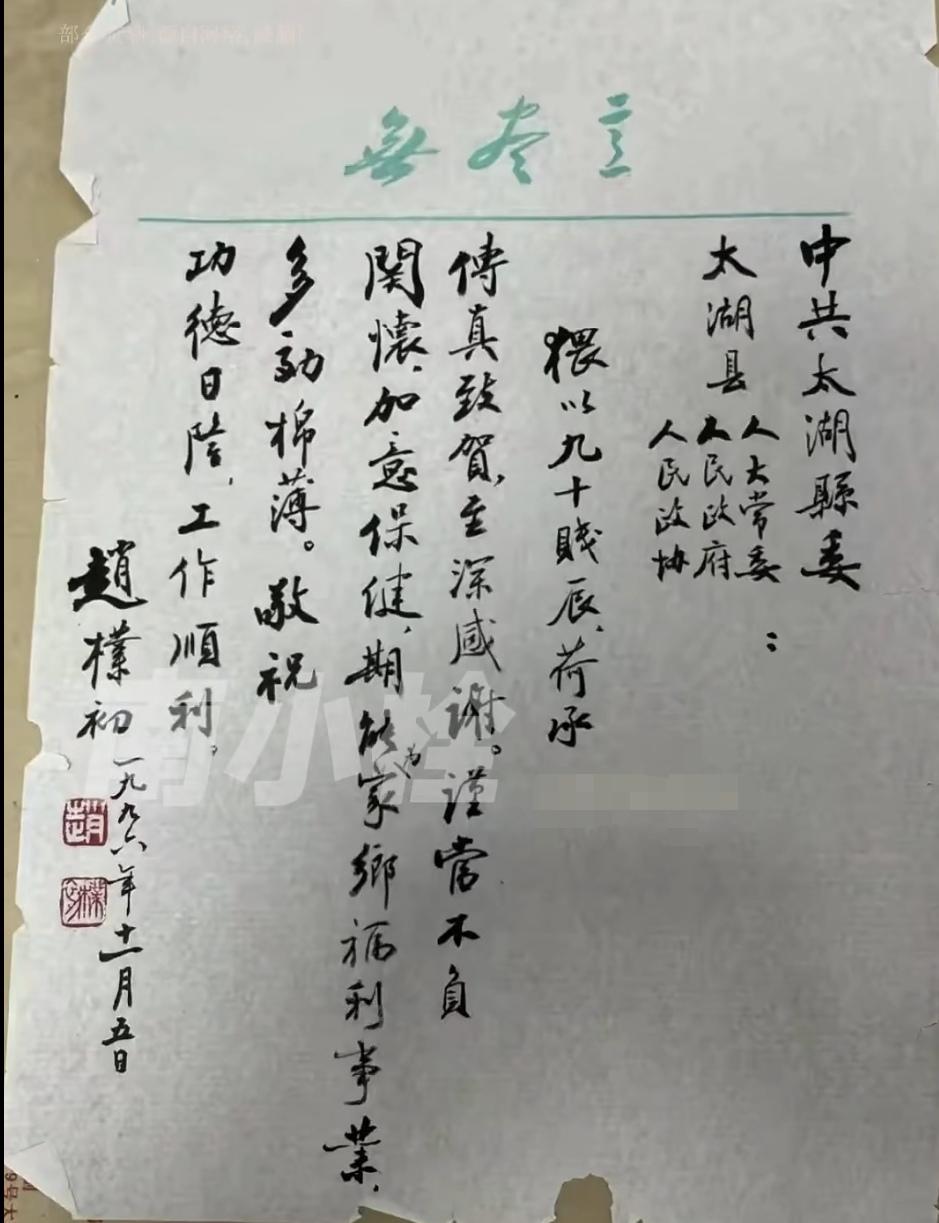 無盡意
中共太湖縣委
太湖县
人大常委
人民政府
人民政协
：
猥以九十賤辰、荷承
傳真致賀，至深感谢。謹當不負
関懷、加意保健、期能为家鄉福利事業、
多効棉薄。敬祝
功德日隆、工作順利。
趙樸初
一九九六年十一月五日
趙
樸初
南小栓